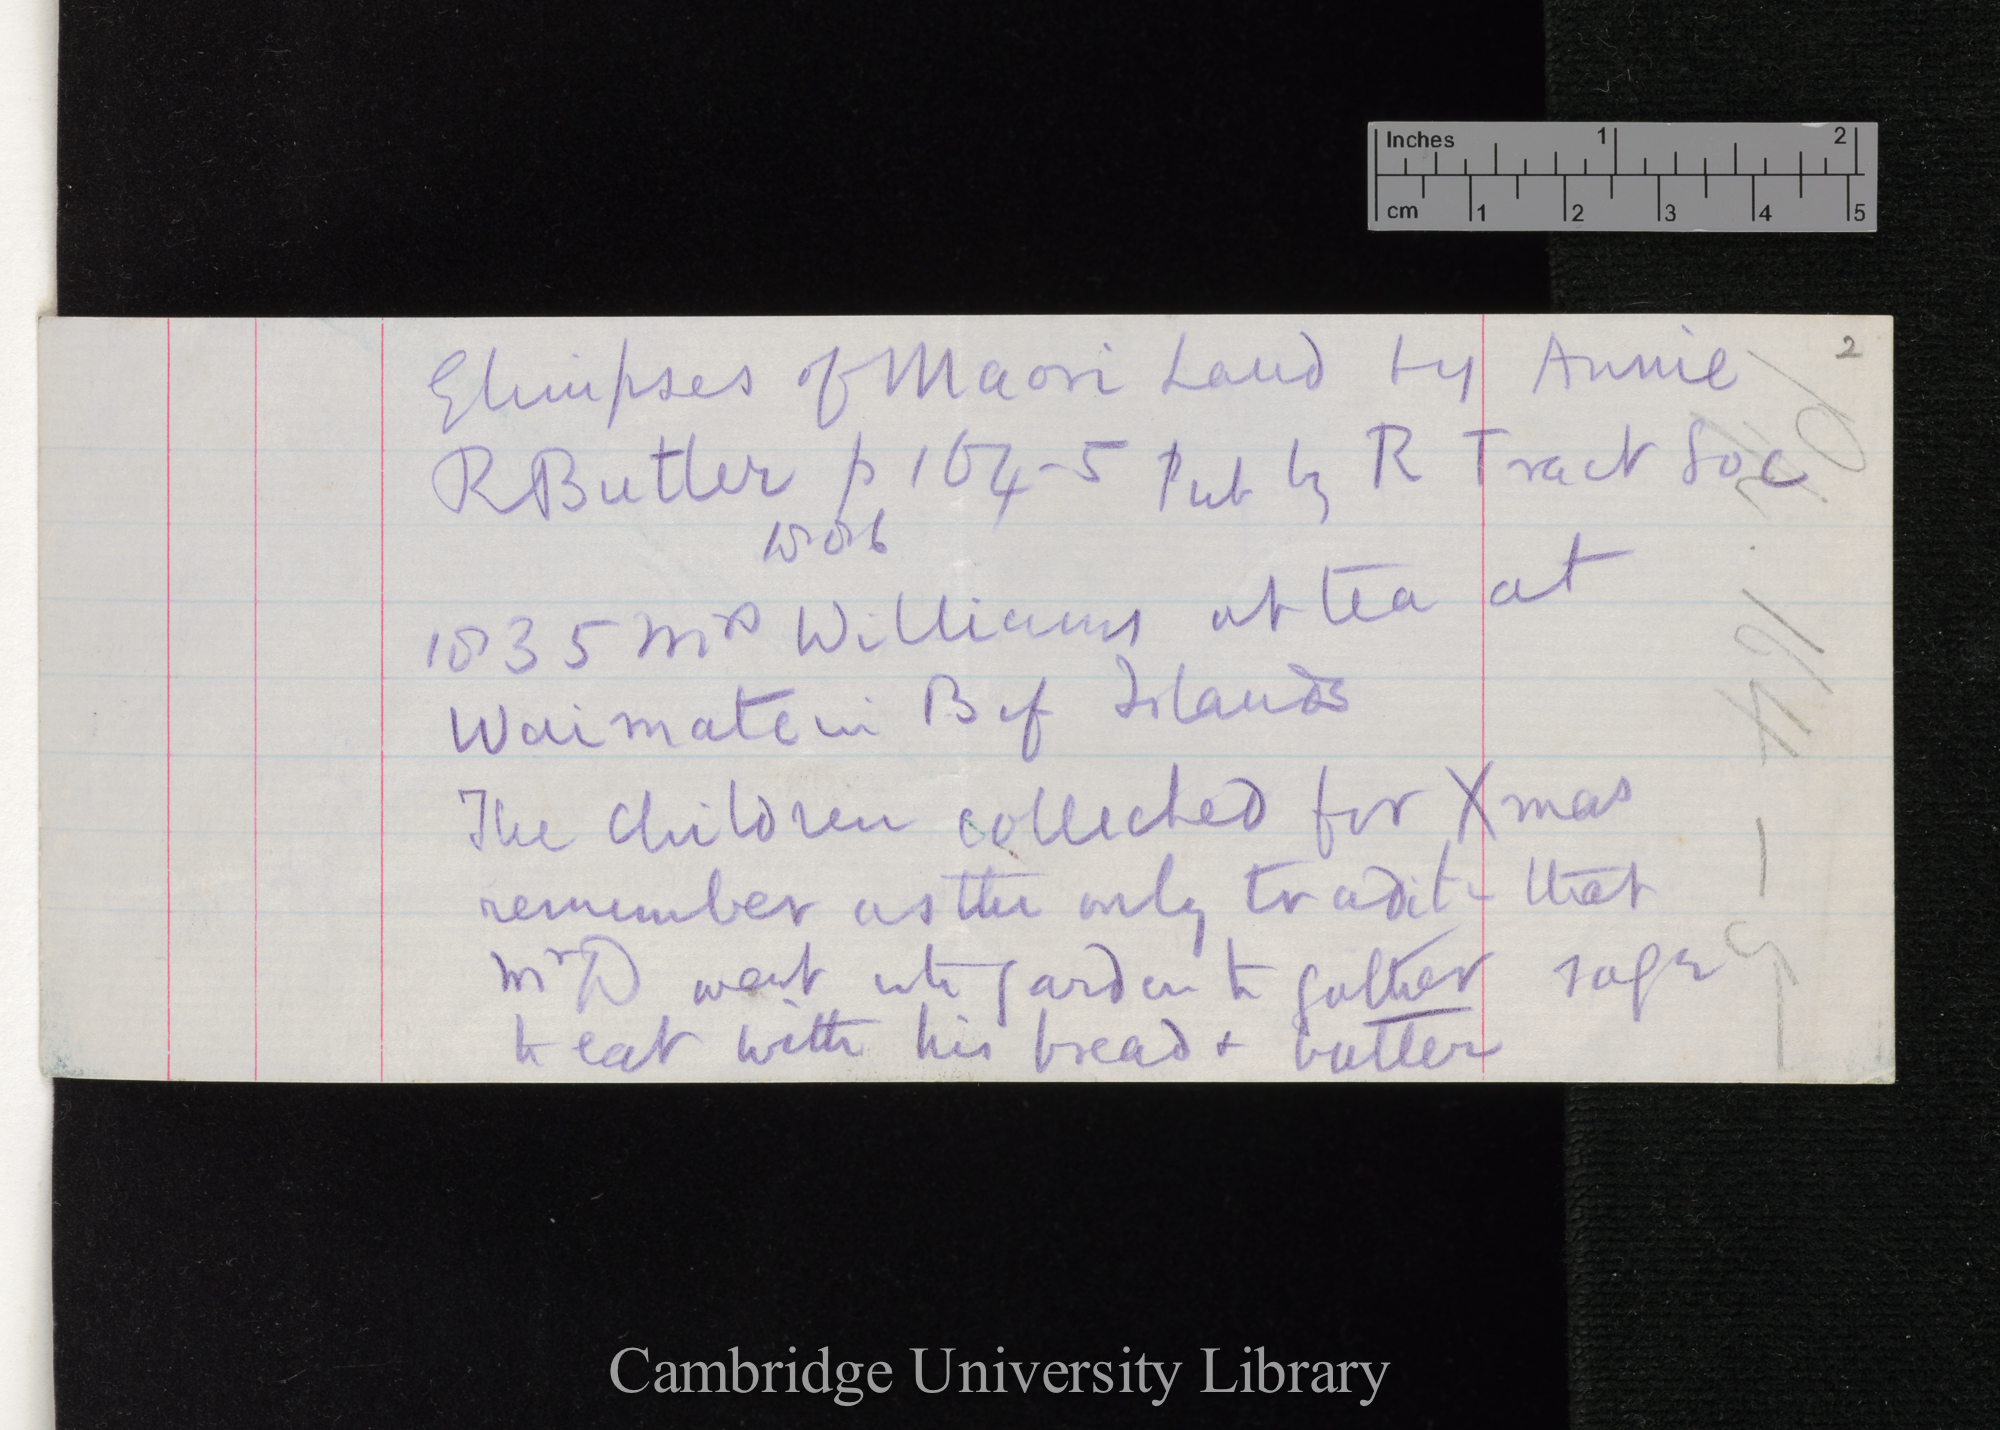 Inches 1 2
cm 1 2 3 4 5
2
Glimpses of Maori Land by Annie
R Butler p 164-5 Pub by R Tract Soc
1886
1835 Mrs Williams at tea at
Waimate in B of Islands
The children collected for Xmas
remember as the only tradit- that
Mr D went into garden to gather sage
to eat with his bread & butter
Cambridge University Library